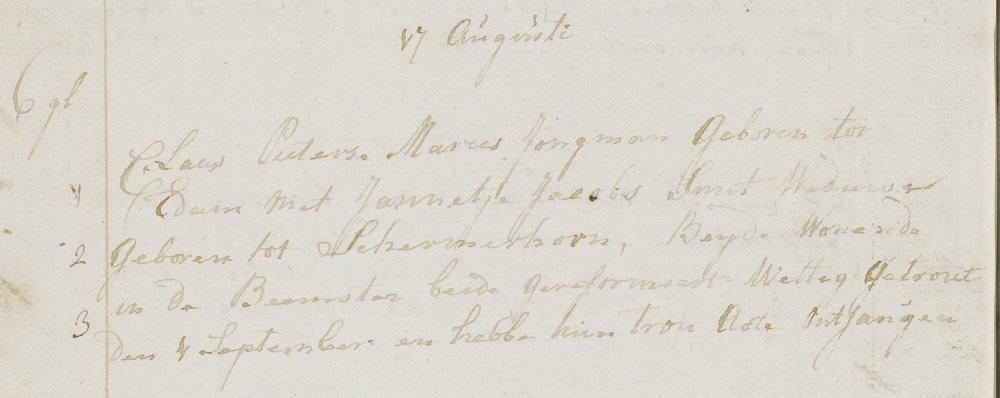 17 Augusti
6 gl
Claas Pieters. Marees Jongman Geboren tot
1 Edam Met Jannetje Jacobs Smit Weduwe
2 Geboren tot Schermerhorn, Beyde Wonende
in de Beemster beide gereformeert Wettig Getrout
3 den 1 September en hebbe hun trou Acte Ontfangen